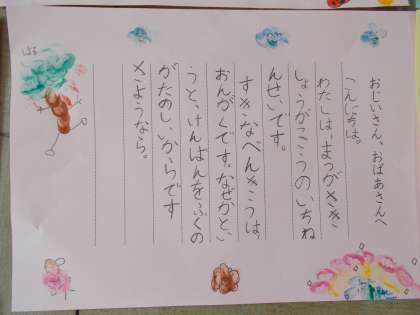 おじいさん、おばあさんへ
こんにちは。
わたしは、まつがさき
しょうがっこうのいちね
んせいです。
すきなべんきょうは、
おんがくです。なぜかとい
うと、けんばんをふくの
がたのしいからです
さようなら。
はる